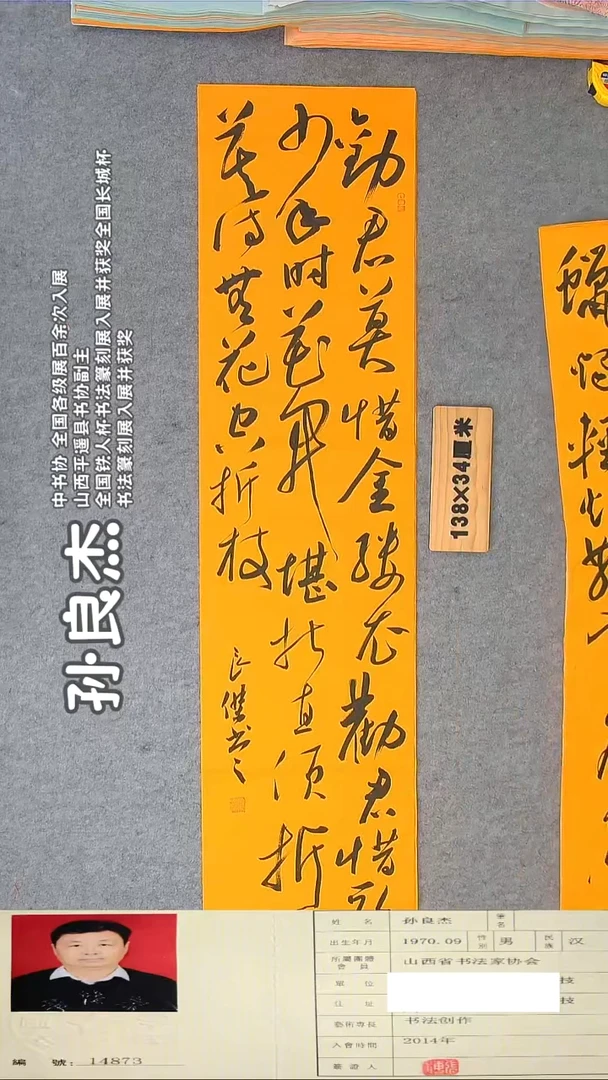 劝君莫惜金缕衣劝君惜取
少年时花开堪折直须折
莫待无花空折枝
良傑书之
138×34厘米
孙良杰
中书协 全国各级展百余次入展
山西平遥县书协副主
全国铁人杯书法篆刻展入展并获奖全国长城杯
书法篆刻展入展并获奖
編 號:14873
姓 名 孙良杰 筆名
出生年月 1970.09 性別 男 民族 汉
所屬團體會員 山西省书法家协会
單 位 技
住 址 技
藝術專長 书法创作
入會時間 2014年
簽證人